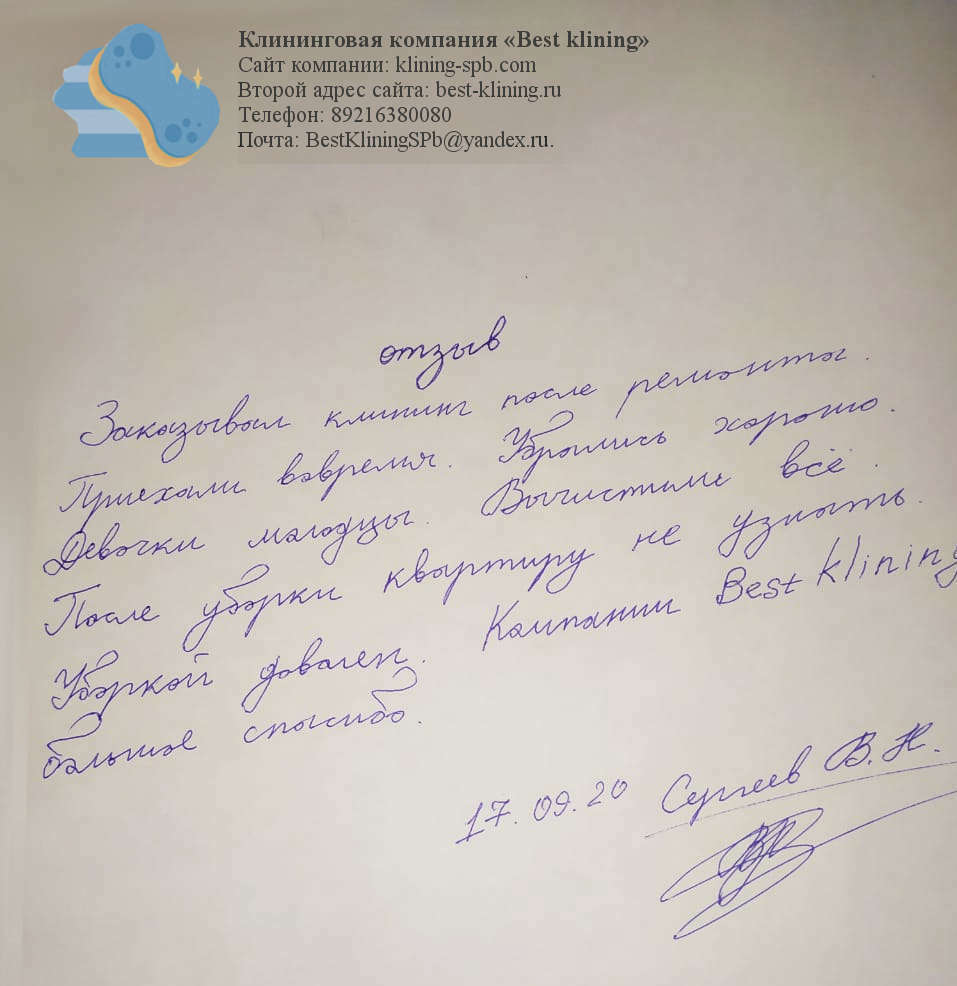 Клининговая компания «Best klining»
Сайт компании: klining-spb.com
Второй адрес сайта: best-klining.ru
Телефон: 89216380080
Почта: BestKliningSPb@yandex.ru.
отзыв
Заказывал клининг после ремонта.
Приехали вовремя. Убрались хорошо.
Девочки молодцы. Вычистили всё.
После уборки квартиру не узнать.
Уборкой доволен. Компании Best klining
большое спасибо.
17.09.20 Сергеев В.Н.